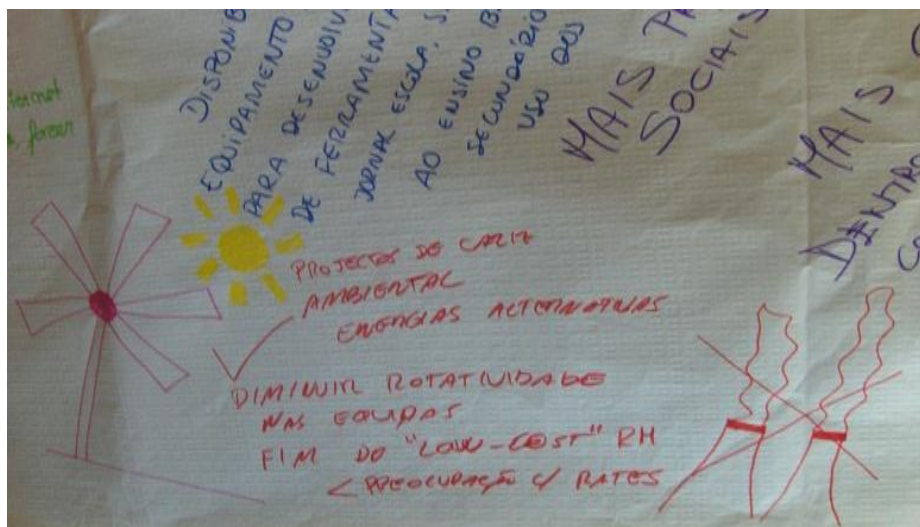 DISPONIB
EQUIPAMENTO
PARA DESENVOLVI
DE FERRAMENTA
JORNAL ESCOLA, S
AO ENSINO B
SECUNDÁRIO
USO DOS
MAIS PA
SOCIAIS
MAIS
DENTRO
CO
ternet
fazer
PROJECTOS DE CARIZ
AMBIENTAL
ENERGIAS ALTERNATIVAS
DIMINUIR ROTATIVIDADE
NAS EQUIPAS
FIM DO "LOW-COST" RH
< PREOCUPAÇÃO C/ RATES